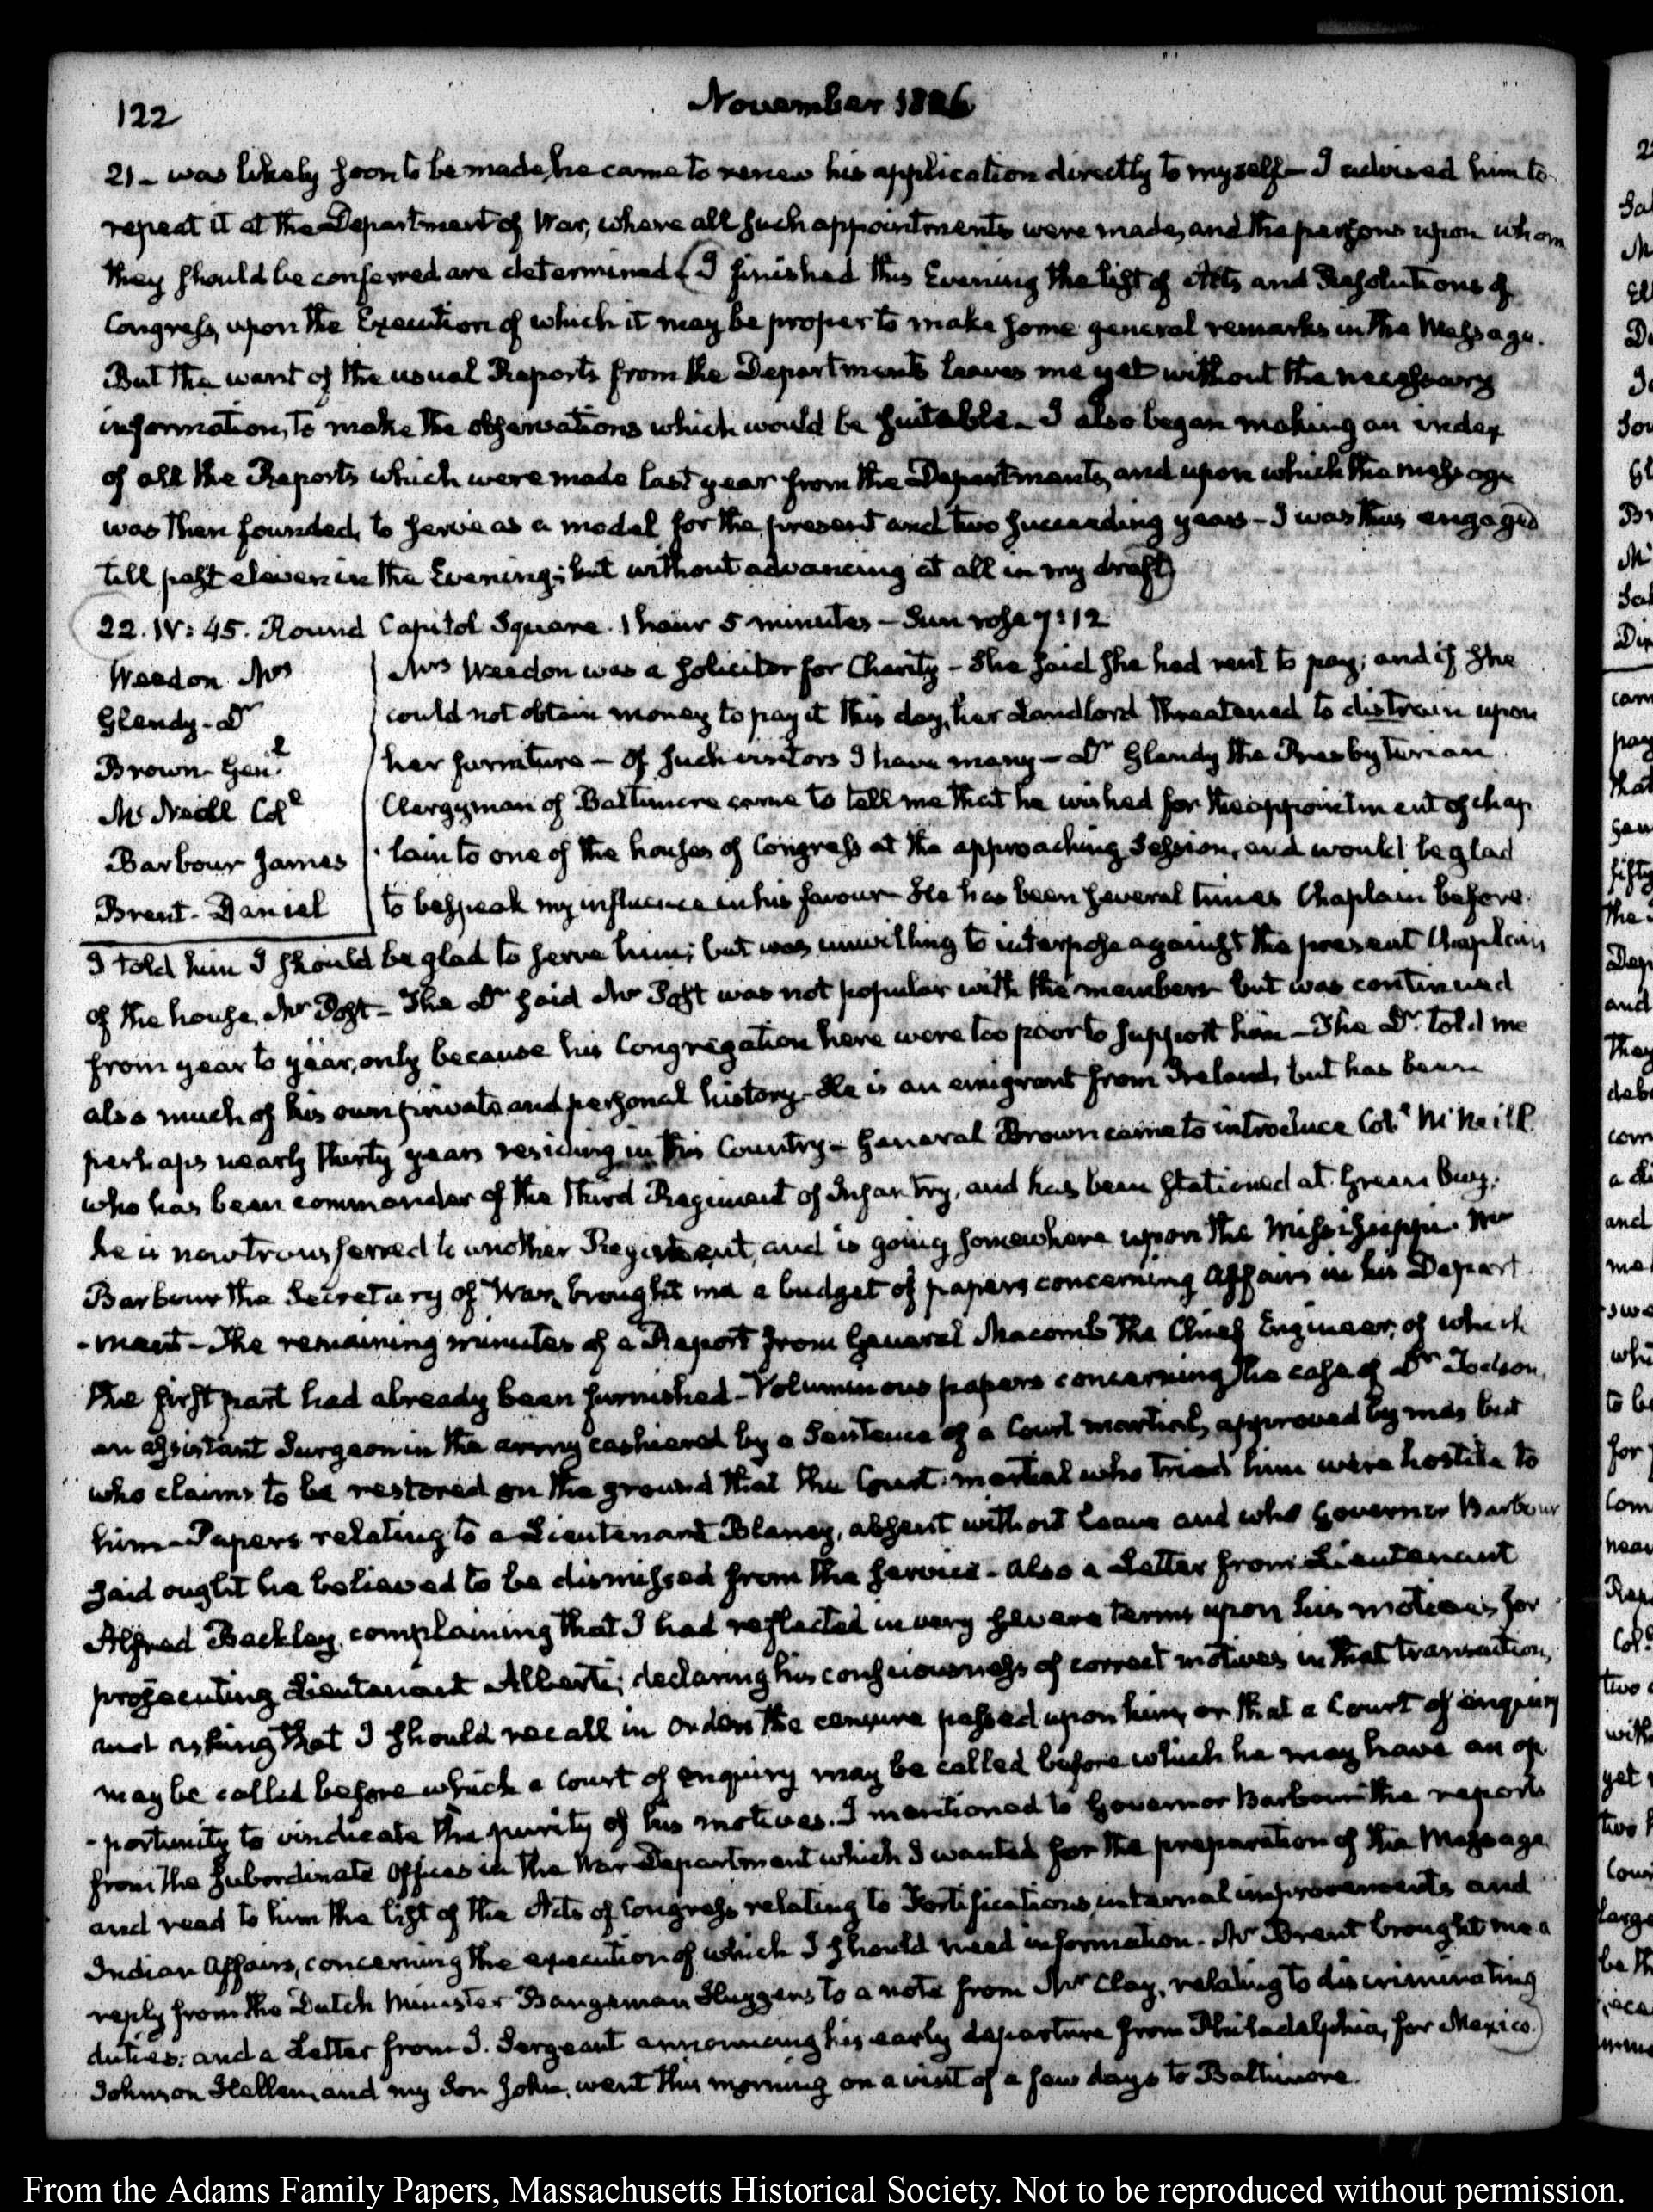 122
November 1826
21 – was likely soon to be made, he came to renew his application directly to myself – I advised him to
repeat it at the Department of War, where all such appointments were made, and the persons upon whom
they should be conferred are determined (I finished this Evening the list of Acts and Resolutions of
Congress, upon the Execution of which it may be proper to make some general remarks in the Message.
But the want of the usual Reports from the Departments leaves me yet without the necessary
information, to make the observations which would be suitable. I also began making an index
of all the Reports which were made last year from the Departments, and upon which the message
was then founded, to serve as a model for the present and two succeeding years – I was thus engaged
till past eleven in the Evening; but without advancing at all in my draft)
22. IV: 45. Round Capitol Square. 1 hour 5 minutes – Sun rose 7:12
Weedon Mrs
Glendy – Dr
Brown – Genl
McNeill Coll
Barbour James
Brent – Daniel
Mrs Weedon was a solicitor for Charity – She said she had rent to pay; and if she
could not obtain money to pay it this day, her Landlord threatened to distrain upon
her furniture – Of such visitors I have many – Dr Glendy the Presbyterian
Clergyman of Baltimore came to tell me that he wished for the appointment of chap
lain to one of the houses of Congress at the approaching Session, and would be glad
to bespeak my influence in his favour – He has been several times Chaplain before.
I told him I should be glad to serve him; but was unwilling to interpose against the present Chaplain
of the house, Mr Post – The Dr said Mr Post was not popular with the members but was continued
from year to year, only because his Congregation here were too poor to support him – The Dr. told me
also much of his own private and personal history – He is an emigrant from Ireland, but has been
perhaps nearly thirty years residing in this Country – General Brown came to introduce Coll McNeill
who has been commander of the third Regiment of Infantry, and has been stationed at Green Bay.
he is now transferred to another Regiment, and is going somewhere upon the Mississippi. Mr
Barbour the Secretary of War, brought me a budget of papers concerning Affairs in his Depart
-ment – The remaining minutes of a Report from General Macomb the Chief Engineer, of which
the first part had already been furnished – Voluminous papers concerning the case of Dr Todson,
an assistant Surgeon in the army cashiered by a Sentence of a Court martial, approved by me, but
who claims to be restored on the ground that the Court-martial who tried him were hostile to
him – Papers relating to a Lieutenant Blaney, absent without leave and who Governor Barbour
said ought he believed to be dismissed from the service – also a Letter from Lieutenant
Alfred Beckley, complaining that I had reflected in very severe terms upon his motives for
prosecuting Lieutenant Alberti; declaring his consciousness of correct motives in that transaction,
and asking that I should recall in Orders the censure passed upon him, or that a Court of enquiry
may be called before which a Court of enquiry may be called before which he may have an op
-portunity to vindicate the purity of his motives. I mentioned to Governor Barbour the reports
from the subordinate Offices in the War Department which I wanted for the preparation of the Message
and read to him the list of the Acts of Congress relating to Fortifications, internal improvements and
Indian Affairs, concerning the execution of which I should need information. Mr Brent brought me a
reply from the Dutch Minister Bangeman Huygens to a note from Mr Clay, relating to discriminating
duties: and a Letter from J. Sergeant announcing his early departure from Philadelphia, for Mexico.)
Johnson Hellen, and my Son John, went this morning on a visit of a few days to Baltimore.
From the Adams Family Papers, Massachusetts Historical Society. Not to be reproduced without permission.